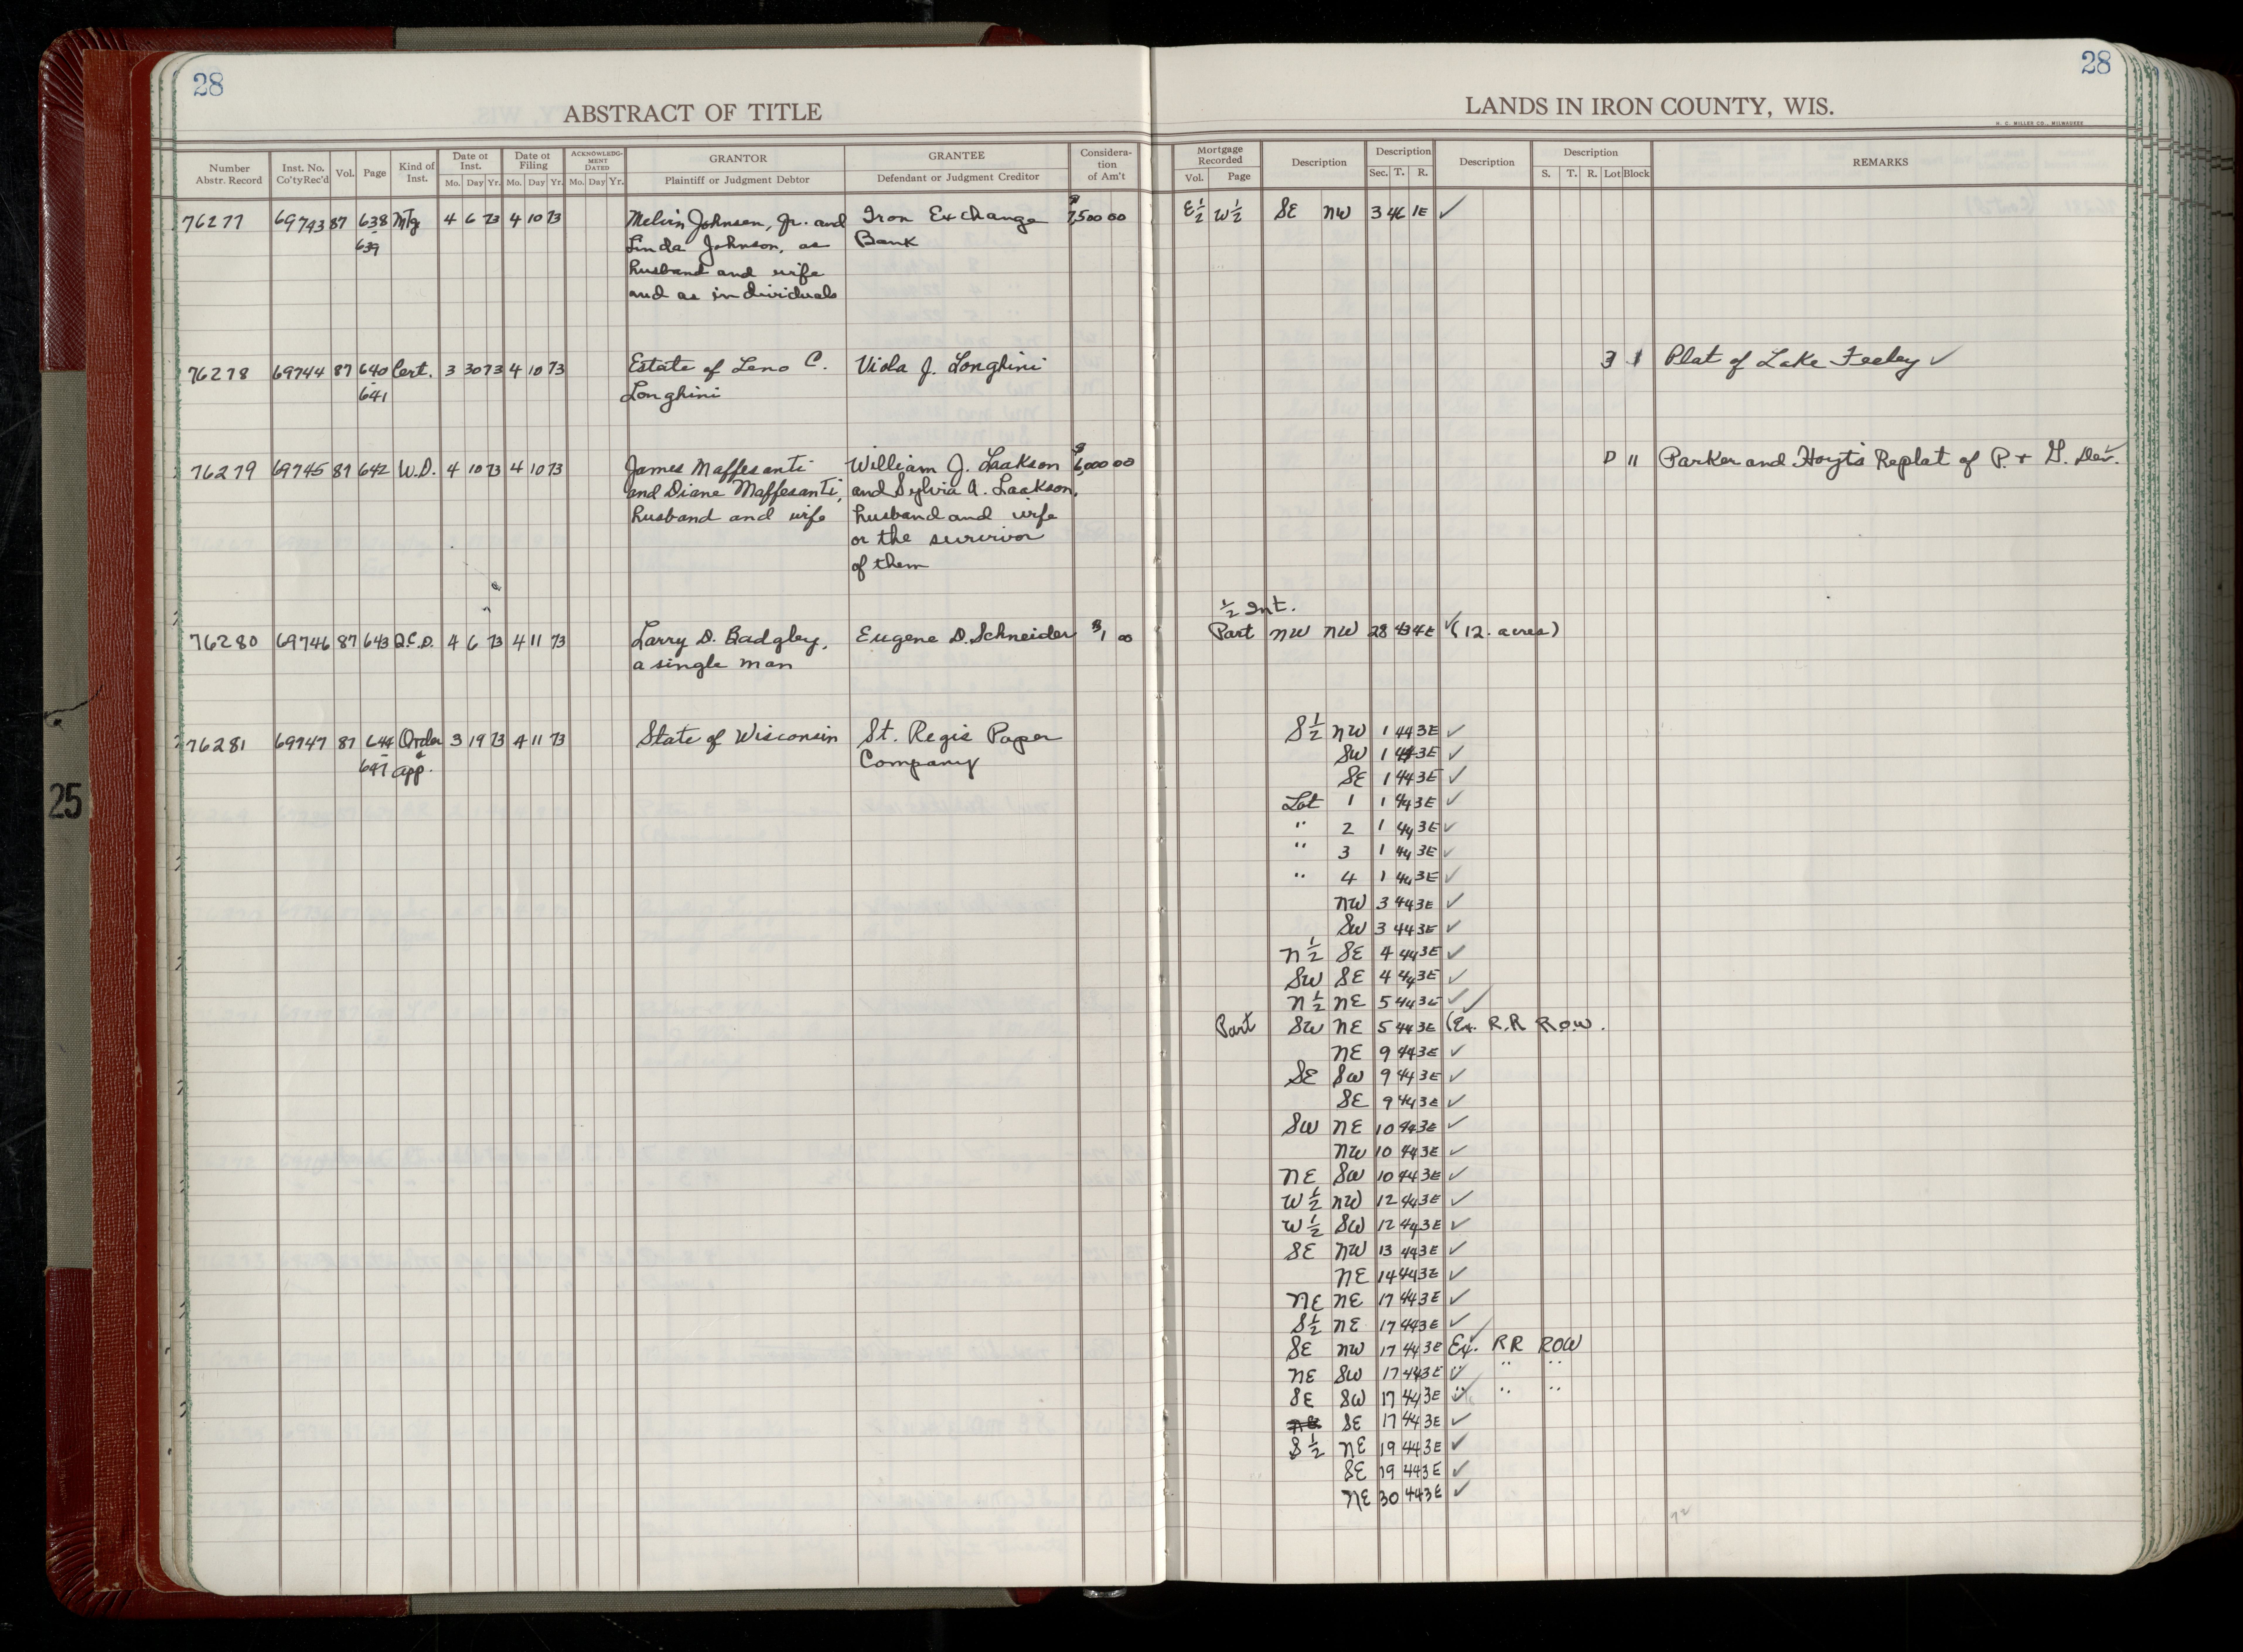 28
28
ABSTRACT OF TITLE
LANDS IN IRON COUNTY, WIS.
H. C. MILLER CO., MILWAUKEE
Number Abstr. Record Inst. No. Co'ty Rec'd Vol. Page Kind of Inst. Date of Inst. Mo. Day Yr. Date of Filing Mo. Day Yr. ACKNOWLEDGMENT DATED Mo. Day Yr. GRANTOR Plaintiff or Judgment Debtor GRANTEE Defendant or Judgment Creditor Consideration of Am't
Mortgage Recorded Vol. Page Description Description Sec. T. R. Description Description S. T. R. Lot Block REMARKS
76277 69743 87 638 Mtg 4 6 73 4 10 73 Melvin Johnson, Jr. and Iron Exchange $7,500 00 E½ W½ SE NW 3 46 1E ✓
639 Linda Johnson, as Bank
husband and wife
and as individuals
76278 69744 87 640 Cert. 3 30 73 4 10 73 Estate of Leno C. Viola J. Longhini 3 1 Plat of Lake Feeley ✓
641 Longhini
76279 69745 87 642 W.D. 4 10 73 4 10 73 James Maffesanti William J. Laakson $6,000 00 D 11 Parker and Hoyt's Replat of P. + G. Dev. ✓
and Diane Maffesanti, and Sylvia A. Laakson,
husband and wife husband and wife
or the survivor
of them
½ Int.
76280 69746 87 643 Q.C.D. 4 6 73 4 11 73 Larry D. Badgley, Eugene D. Schneider $1 00 Part NW NW 28 43 4E ✓ (12. acres)
a single man
76281 69747 87 644 Order 3 19 73 4 11 73 State of Wisconsin St. Regis Paper S½ NW 1 44 3E ✓
647 & app. Company SW 1 44 3E ✓
SE 1 44 3E ✓
Lot 1 1 44 3E ✓
" 2 1 44 3E ✓
" 3 1 44 3E ✓
" 4 1 44 3E ✓
NW 3 44 3E ✓
SW 3 44 3E ✓
N½ SE 4 44 3E ✓
SW SE 4 44 3E ✓
N½ NE 5 44 3E ✓
Part SW NE 5 44 3E ✓ (Ex. R.R R.O.W.
NE 9 44 3E ✓
SE SW 9 44 3E ✓
SE 9 44 3E ✓
SW NE 10 44 3E ✓
NW 10 44 3E ✓
NE SW 10 44 3E ✓
W½ NW 12 44 3E ✓
W½ SW 12 44 3E ✓
SE NW 13 44 3E ✓
NE 14 44 3E ✓
NE NE 17 44 3E ✓
S½ NE 17 44 3E ✓
SE NW 17 44 3E ✓ Ex. RR ROW
NE SW 17 44 3E ✓ " " "
SE SW 17 44 3E ✓ " " "
SE 17 44 3E ✓
S½ NE 19 44 3E ✓
SE 19 44 3E ✓
NE 30 44 3E ✓
25